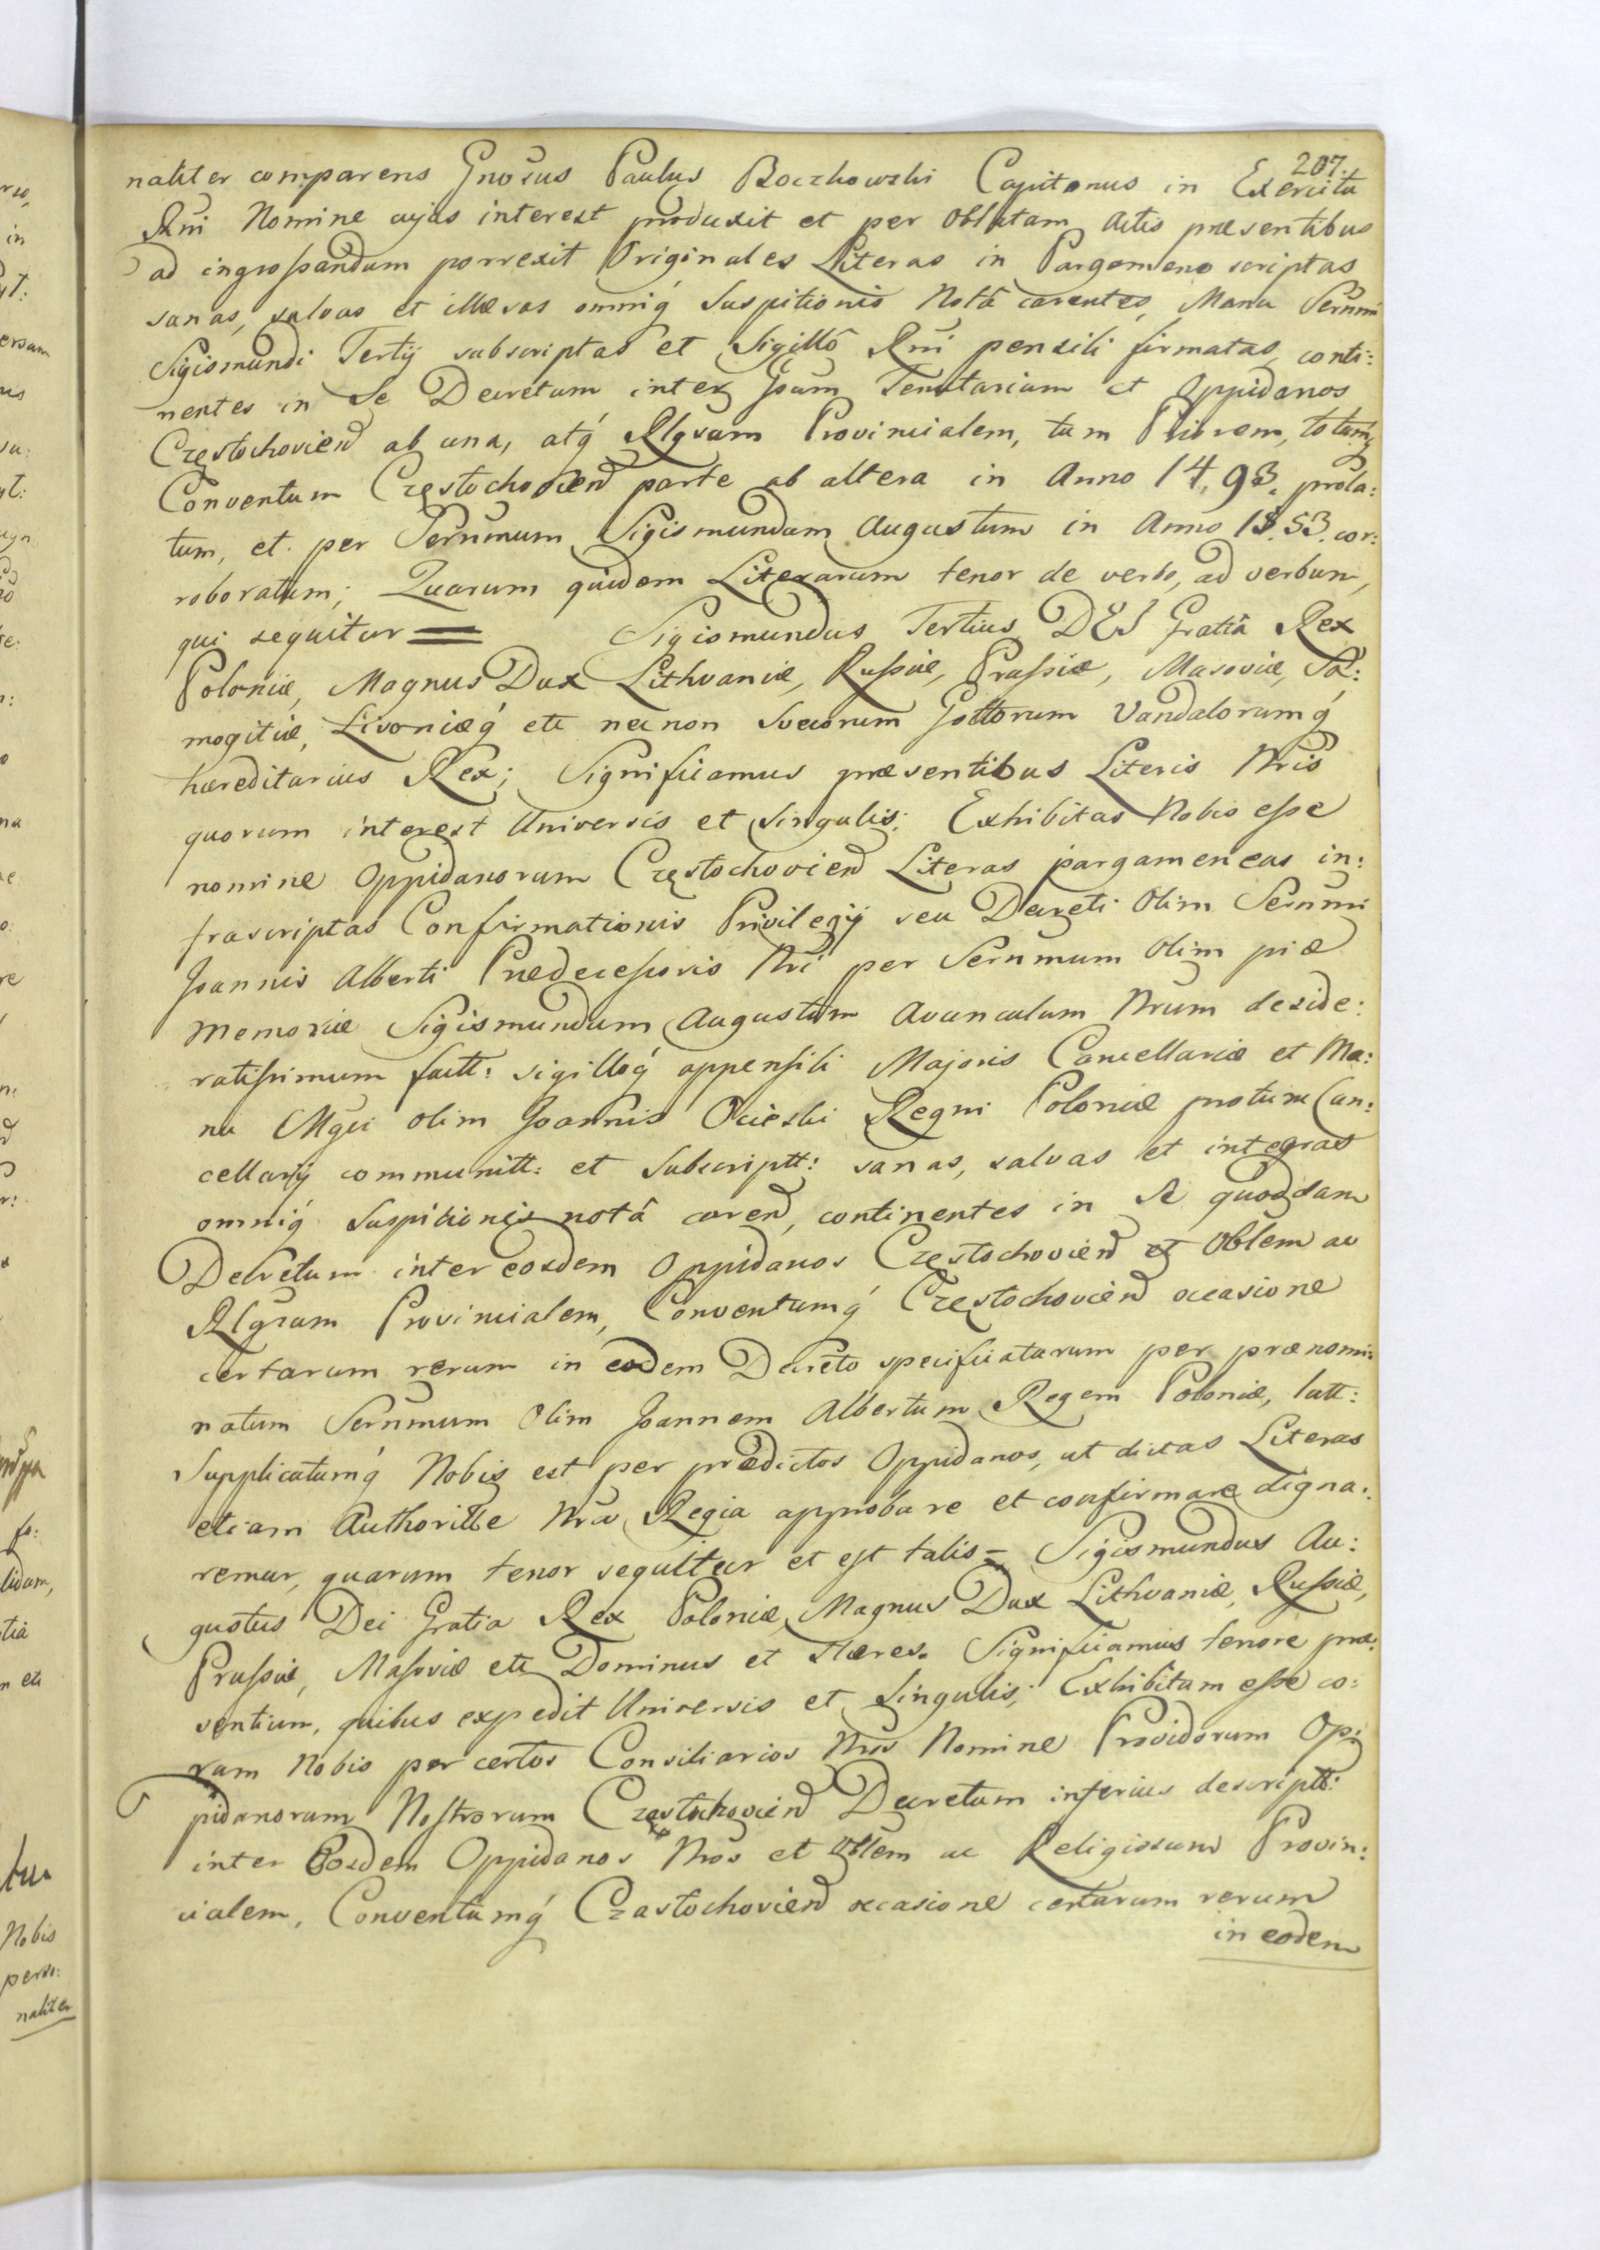 207.
naliter comparens Gnosus Paulus Boczkowski Capitanus in Exercitu
Rni Nomine cujus interest produxit et per Oblatam Actis præsentibus
ad ingrossandum porrexit Originales Literas in Pargameno scriptas
sanas, salvas et illæsas omniq́ Suspitionis Notâ carentes, Manu Sernmi
Sigismundi Tertij subscriptas et Sigillô Rni pensili firmatas, conti:
nentes in Se Decretum inter Gsum Tenutarium et Oppidanos
Częstochovien ab una, atq́ Rlgsum Provincialem, tum Priorem, totumq́
Conventum Częstochovien parte ab altera in Anno 14.93. prola:
tum, et per Sernmum Sigismundum Augustum in Anno 15.53. cor:
roboratum; Quarum quidem Literarum tenor de verbo, ad verbum,
qui sequitur = Sigismundus Tertius DEI Gratiâ Rex
Poloniæ, Magnus Dux Lithvaniæ, Russiæ, Prussiæ, Masoviæ, Sa:
mogitiæ, Livoniæq́ etc necnon Svecorum Gottorum Vandalorumq́
hæreditarius Rex; Significamus præsentibus Literis Nris
quorum interest Universis et Singulis; Exhibitas Nobis esse
nomine Oppidanorum Częstochovien Literas pargameneas in:
frascriptas Confirmationis Privilegij seu Decreti Olim Sernmi
Joannis Alberti Prædecessoris Nri per Sernmum Olim piæ
memoriæ Sigismundum Augustum Avunculum Nrum deside:
ratissimum factt: sigilloq́ appensili Majoris Cancellariæ et Ma:
nu Mgci olim Joannis Ocieski Regni Poloniæ protunc Can:
cellarij communitt: et Subscriptt: sanas, salvas et integras
omniq́ Suspitionis notâ caren, continentes in Se quoddam
Decretum inter eosdem Oppidanos Częstochovien et Oblem ac
Rlgsum Provincialem, Conventumq́ Częstochovien occasione
certarum rerum in eodem Decreto specificatarum per prænomi:
natum Sernmum Olim Joannem Albertum Regem Poloniæ, latt:
Supplicatumq́ Nobis est per prædictos Oppidanos, ut dictas Literas
etiam Authoritte Nra Regia approbare et confirmare digna:
remur, quarum tenor sequitur et est talis = Sigismundus Au:
gustus Dei Gratia Rex Poloniæ, Magnus Dux Lithvaniæ, Russiæ,
Prussiæ, Masoviæ etc Dominus et Hæres. Significamus tenore præ:
sentium, quibus expedit Universis et Singulis; Exhibitum esse co:
ram Nobis per certos Consiliarios Nros Nomine Providorum Op:
pidanorum Nostrorum Częstochovien Decretum inferius descriptt:
inter Eosdem Oppidanos Nros et Oblem ac Religiosum Provin:
cialem, Conventumq́ Częstochovien occasione certarum rerum
in eodem